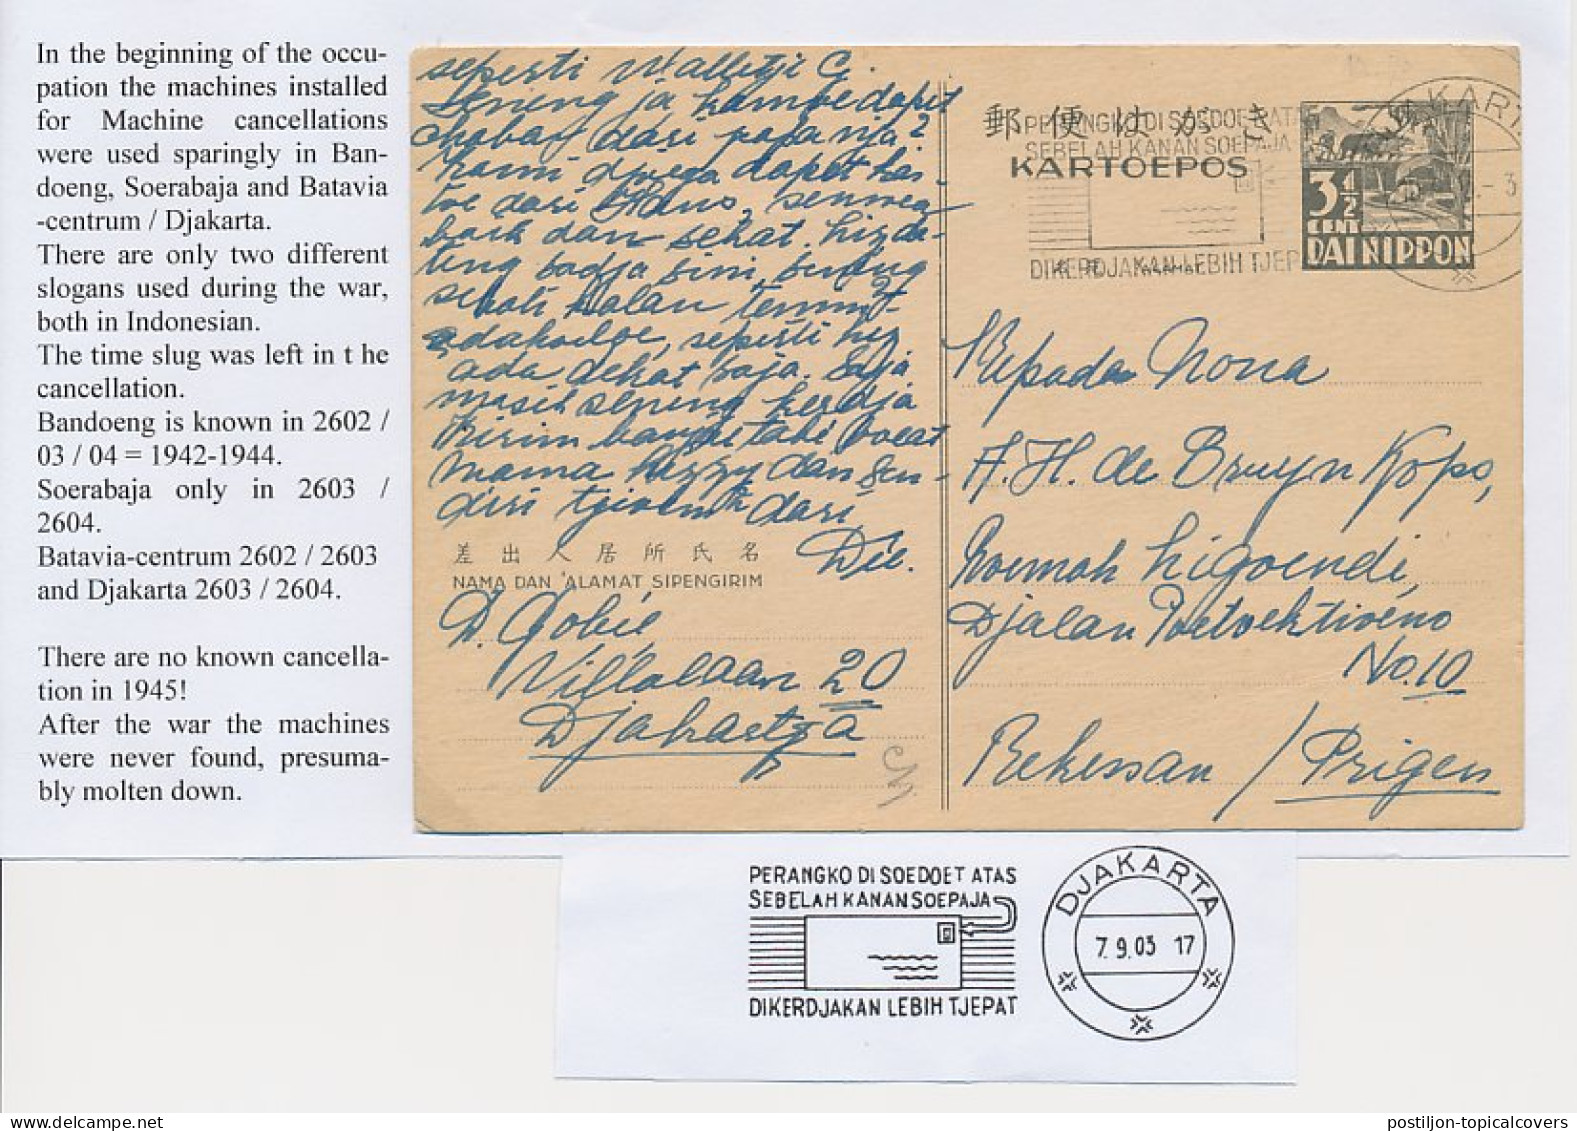 In the beginning of the occu-
pation the machines installed
for Machine cancellations
were used sparingly in Ban-
doeng, Soerabaja and Batavia
-centrum / Djakarta.
There are only two different
slogans used during the war,
both in Indonesian.
The time slug was left in t he
cancellation.
Bandoeng is known in 2602 /
03 / 04 = 1942-1944.
Soerabaja only in 2603 /
2604.
Batavia-centrum 2602 / 2603
and Djakarta 2603 / 2604.
There are no known cancella-
tion in 1945!
After the war the machines
were never found, presuma-
bly molten down.
seperti
Seneng ja kamoe dapet
chabar dari papa nja?
kami djoega dapet kar-
toe dari
baik dan sehat.
ting sadja sini,
sekali
seperti
ada dekat saja. Saja
masih seneng kerdja
Kirim banjak tabe boeat
mama dan sen-
diri dari
Dée.
差出人居所氏名
NAMA DAN ALAMAT SIPENGIRIM
D. Gobée
Villalaan 20
Djakarta
郵便はがき
KARTOEPOS
PERANGKO DI SOEDOET ATA
SEBELAH KANAN SOEPAJA
DIKERDJAKAN LEBIH TJEP
KARTA
3 1/2
CENT
DAI NIPPON
Kepada Nona
A. H. de Bruyn Kops,
Roemah
Djalan
No. 10
/ Prigen
PERANGKO DI SOEDOET ATAS
SEBELAH KANAN SOEPAJA
DIKERDJAKAN LEBIH TJEPAT
DJAKARTA
7.9.03 17
delcampe.net
postiljon-topicalcovers